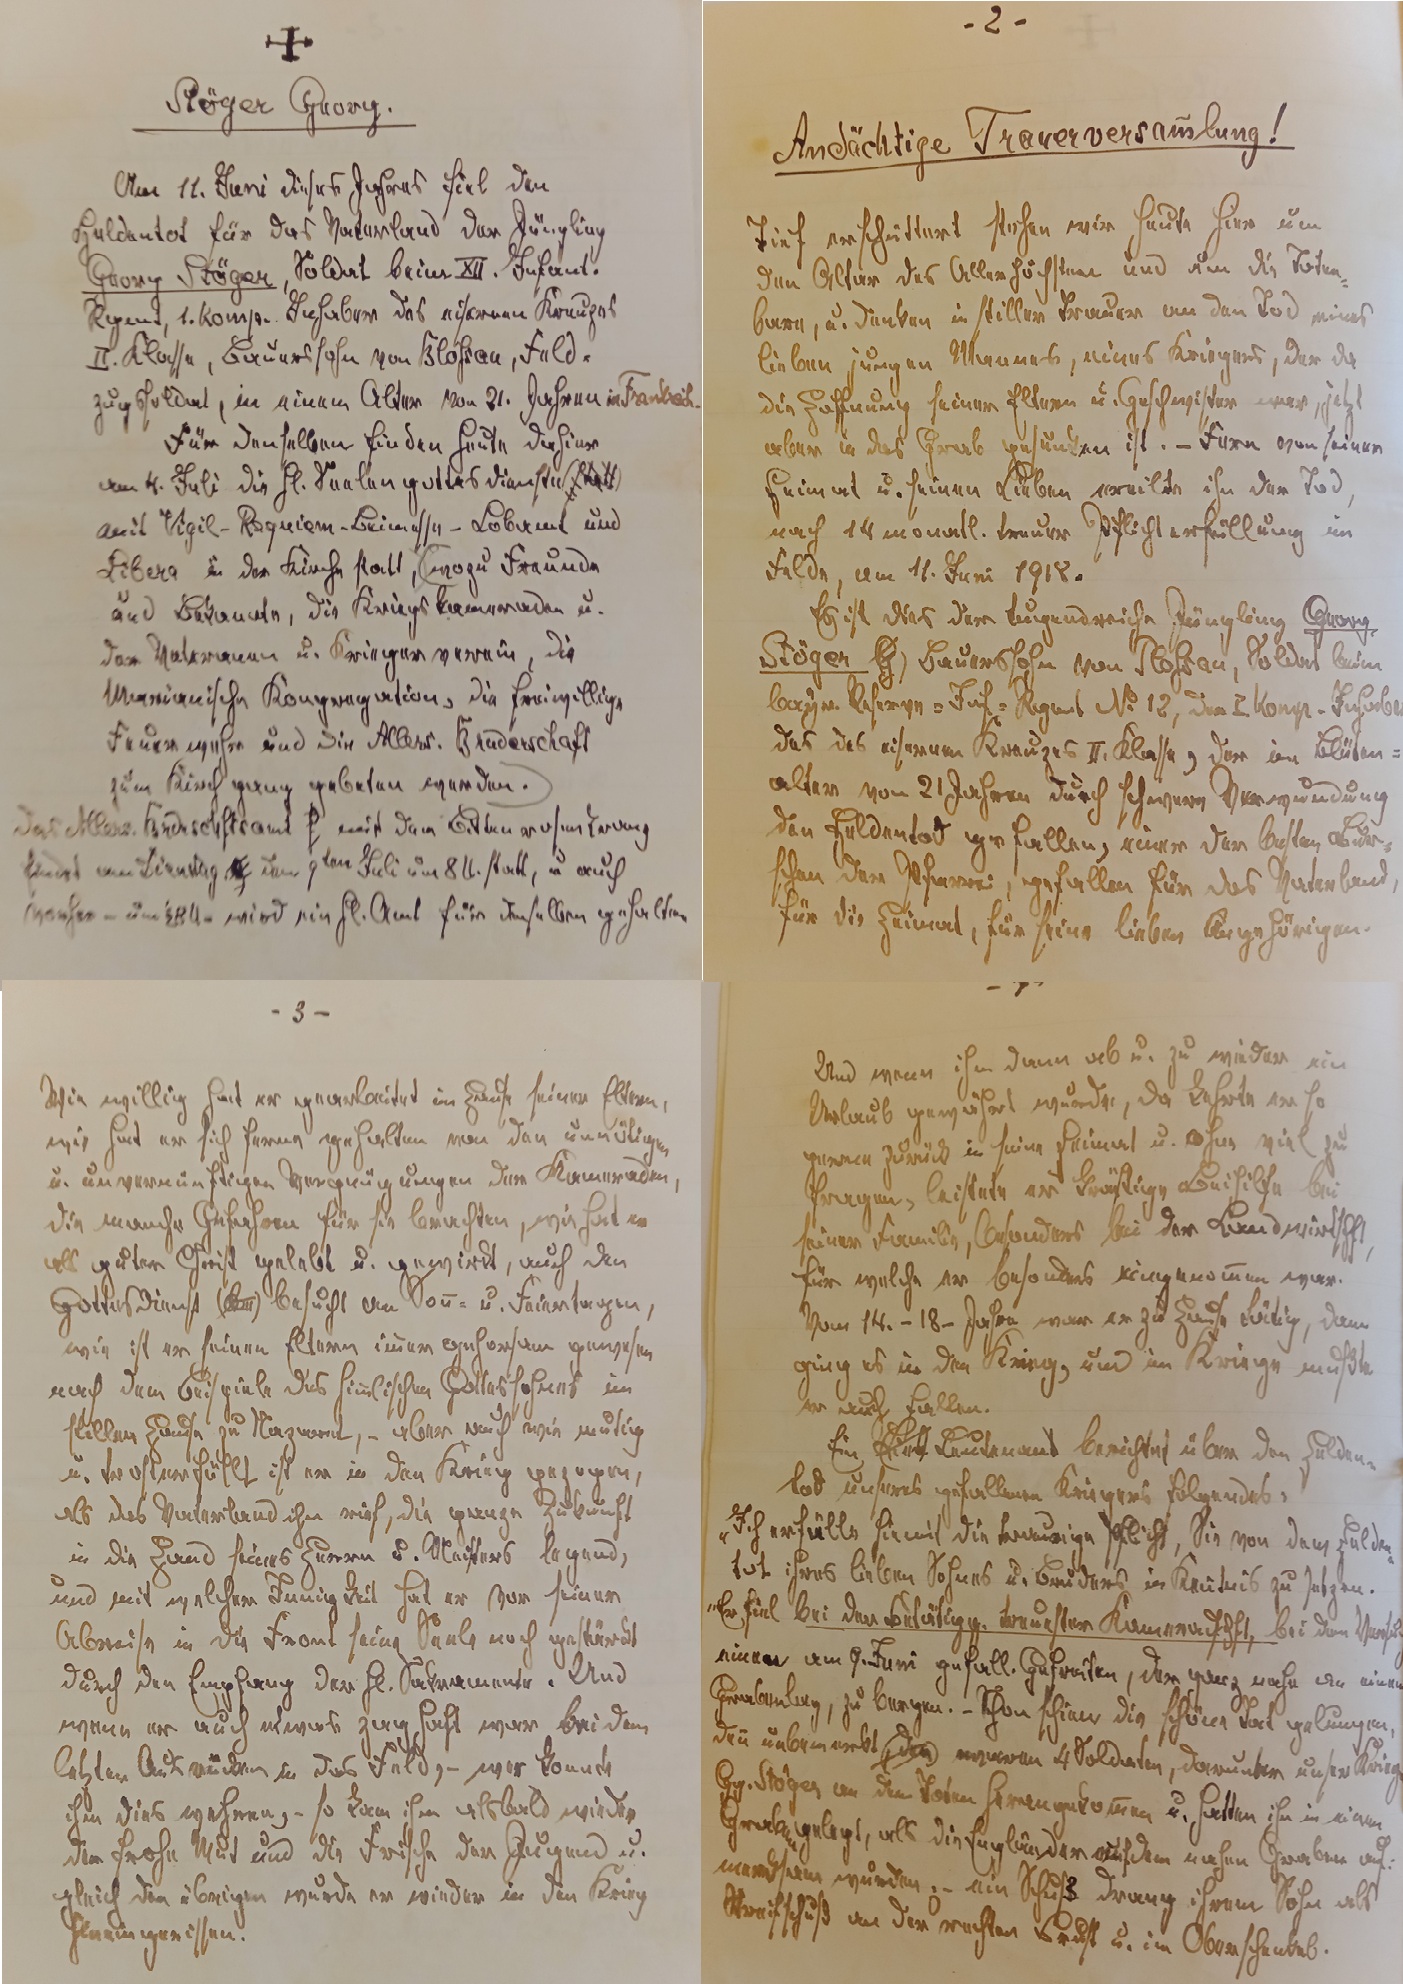 Stöger Georg.
Am 11. Juni dieses Jahres fiel den
Heldentot für das Vaterland der Jüngling
Georg Stöger, Soldat beim XII. Infant.
Regmt, 1. Komp. Inhaber des eisernen Kreuzes
II. Klasse, Bauerssohn von Flohsau, Feld-
zugssoldat, in einem Alter von 21. Jahren in Frankreich.
Für denselben finden heute dahier
am 4. Juli die hl. Seelengottesdienste (statt)
mit Vigil - Requiem - Beimesse - Lobamt und
Libera in der Kirche statt, (wozu Freunde
und Bekannte, die Kriegskameraden u.
der Veteranen u. Kriegerverein, die
Marianische Kongregation, die freiwillige
Feuerwehr und die Allers. Bruderschaft
zum Kirchgang gebeten werden.)
Das Allers. Bruderschftsamt mit dem Bittenrosenkranz
findet am Dienstag den 9ten Juli um 8 U. statt, u auch
vorher - um - wird ein hl. Amt für denselben gehalten
- 2 -
Andächtige Trauerversam̅lung!
Tief erschüttert stehen wir heute hier um
den Altar des Allerhöchsten und um die Toten-
bare, u. denken in stiller Trauer an den Tod eines
lieben jungen Mannes, eines Kriegers, der da
die Hoffnung seiner Eltern u. Geschwister war, jetzt
aber in das Grab gesunken ist. - Fern von seiner
Heimat u. seinen Lieben ereilte ihn der Tod,
nach 14 monatl. treuer Pflichterfüllung im
Felde, am 11. Juni 1918.
Es ist dies der tugendreiche Jüngling Georg
Stöger, Bauerssohn von Flohsau, Soldat beim
bayr. Reserve-Inf-Regmt No 12, der I Komp. - Inhaber
des des eisernen Kreuzes II. Klasse, der im Blüten-
alter von 21 Jahren durch schwere Verwundung
den Heldentod gefallen, einer der besten Bur-
schen der Pfarrei, gefallen für das Vaterland,
für die Heimat, für seine lieben Angehörigen.
- 3 -
Wie willig hat er gearbeitet im Hause seiner Eltern,
wie hat er sich ferne gehalten von den unnötigen
u. unvernünftigen Vergnügungen der Kameraden,
die manche Gefahren für sie brachten, wie hat er
als guter Christ gelebt u. gewirkt, auch den
Gottesdienst besucht an Son̅- u. Feiertagen,
wie ist er seinen Eltern im̅er gehorsam gewesen
nach dem Beispiele des him̅lischen Gottessohnes im
stillen Hause zu Nazaret, - aber auch wie mutig
u. trosterfüllt ist er in den Krieg gezogen,
als das Vaterland ihn rief, die ganze Zukunft
in die Hand seines Herrn u. Meisters legend,
und mit welcher Innigkeit hat er vor seiner
Abreise in die Front seine Seele noch gestärkt
durch den Empfang der hl. Sakramente. Und
wenn er auch etwas zaghaft war bei dem
letzten Ausrücken in das Feld, - wer konnte
ihm dies wehren, - so kam ihm alsbald wieder
der frohe Mut und die Frische der Jugend u.
gleich den übrigen wurde er wieder in den Krieg
hineingerissen.
Und wenn ihm dann ab u. zu wieder ein
Urlaub gewährt wurde, da kehrte er so
gerne zurück in seine Heimat u. ohne viel zu
fragen, leistete er kräftige Beihilfe bei
seiner Familie, besonders bei der Landwirtschft,
für welche er besonders eingenom̅en war.
Vom 14. - 18 - Jahre war er zu Hause tätig, dann
ging es in den Krieg, und im Kriege mußte
er auch fallen.
Ein Leutenant berichtet über den Helden-
tod unseres gefallenen Kriegers folgendes:
„Ich erfülle hiemit die traurige Pflicht, Sie von dem Helden-
tot ihres lieben Sohnes u. Bruders in Kentnis zu setzen.
„Er fiel bei der Betätigg. treuster Kameradschft, bei dem Versuch
einen am 9. Juni gefall. Gefreiten, der ganz nahe an einem
Graben lag, zu bergen. - Schon schien die schöne Tat gelungen,
den̅ unbemerkt waren 4 Soldaten, darunter unser Krieger
Gg. Stöger an den Toten herangekom̅en u. hatten ihn in einen
Graben gelegt, als die Engländer auf dem nahen Graben auf-
merksam wurden, - ein Schuß drang ihrem Sohn als
Streifschuß an der rechten Brust u. im Oberschenkel.